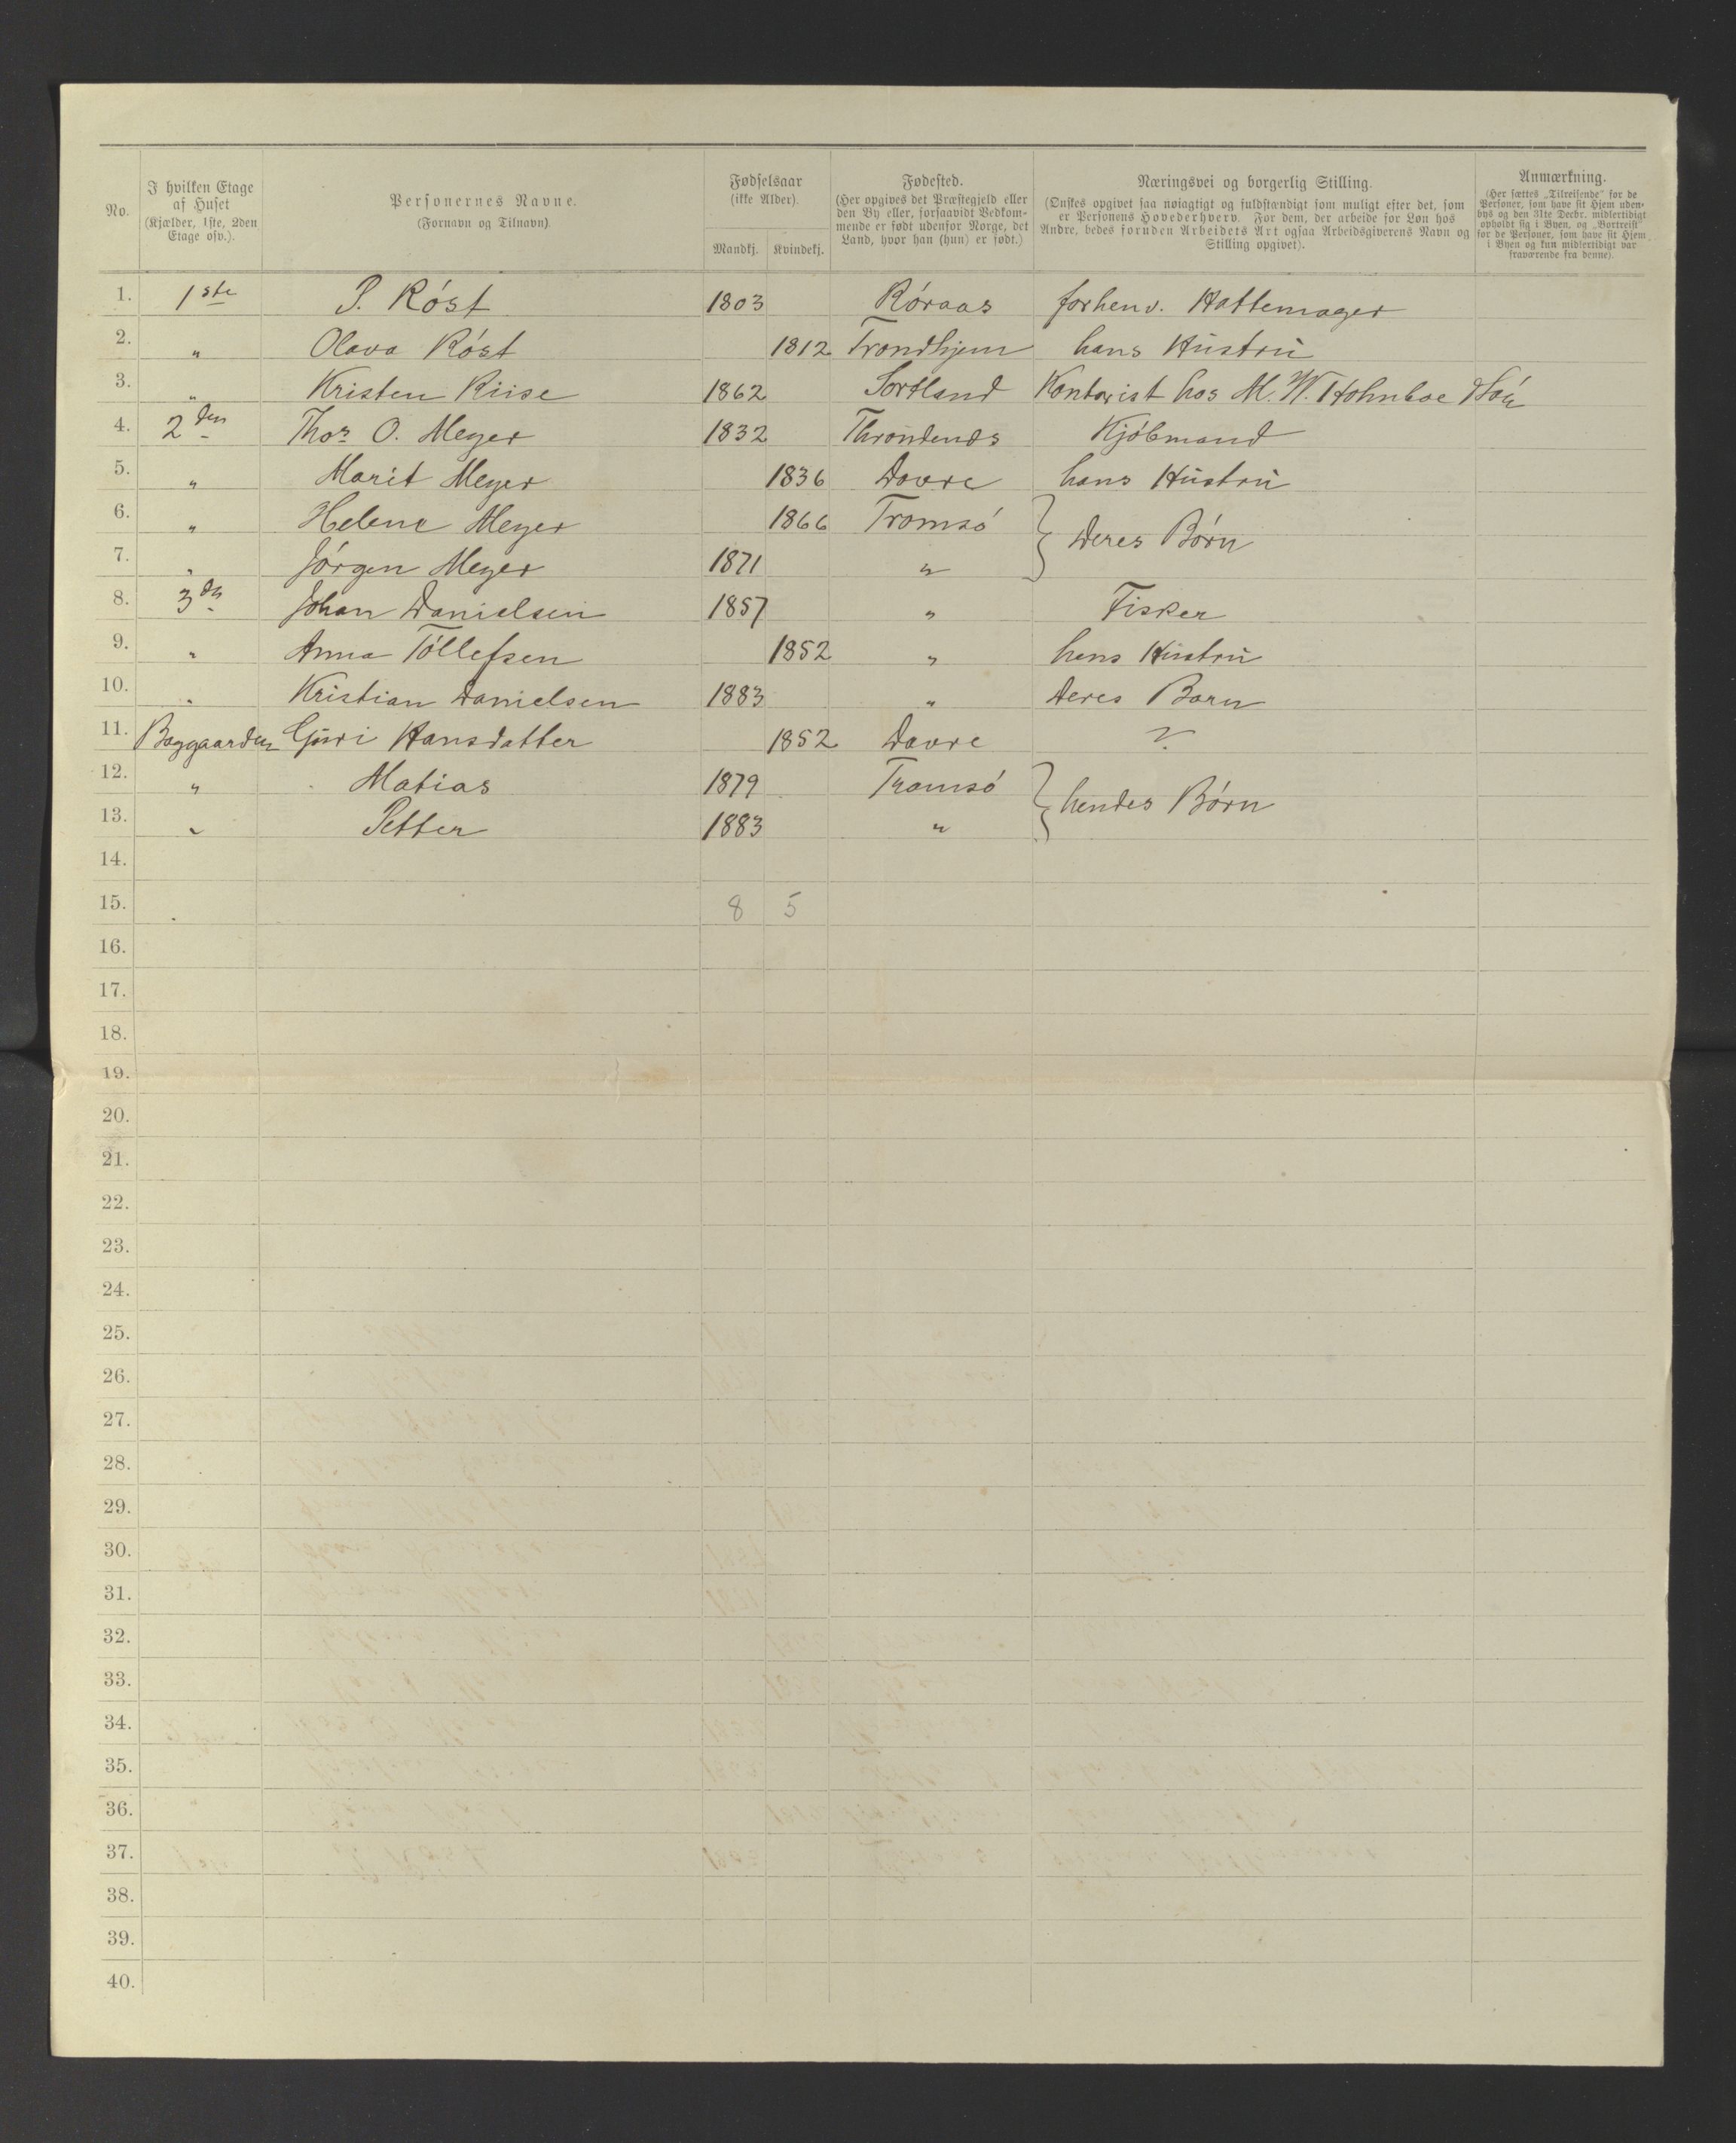 No.
I hvilken Etage
af Huset
(Kjælder, 1ste, 2den
Etage osv.).
Personernes Navne.
(Fornavn og Tilnavn).
Fødselsaar
(ikke Alder).
Mandkj. Kvindekj.
Fødested.
(Her opgives det Præstegjeld eller
den By eller, forsaavidt Vedkom-
mende er født udenfor Norge, det
Land, hvor han (hun) er født.)
Næringsvei og borgerlig Stilling.
(Ønskes opgivet saa nøiagtigt og fuldstændigt som muligt efter det, som
er Personens Hovederhverv. For dem, der arbeide for Løn hos
Andre, bedes foruden Arbeidets Art ogsaa Arbeidsgiverens Navn og
Stilling opgivet).
Anmærkning.
(Her sættes „Tilreisende" for de
Personer, som have sit Hjem uden-
bys og den 31te Decbr. midlertidigt
opholdt sig i Byen, og „Bortreist"
for de Personer, som have sit Hjem
i Byen og kun midlertidigt var
fraværende fra denne).
1. 1ste P. Róst 1803 Róraas forhenv. Hattemager
2. " Olava Róst 1812 Trondhjem hans Hustru
3. " Kristen Riise 1862 Sortland Kontorist hos M. W. Holmboe
4. 2den Thos O. Meyer 1832 Throndenes Kjóbmand
5. " Marit Meyer 1836 Dovre hans Hustru
6. " Helene Meyer 1866 Tromsó } Deres Bórn
7. " Jórgen Meyer 1871 "
8. 3de Johan Danielsen 1857 " Fisker
9. " Anna Tóllefsen 1852 " hans Hustru
10. " Kristian Danielsen 1883 " Deres Barn
11. Baggaarden Guri Hansdatter 1852 Dovre ?
12. " Matias 1879 Tromsó } hendes Bórn
13. " Petter 1883 "
14.
15. 8 5
16.
17.
18.
19.
20.
21.
22.
23.
24.
25.
26.
27.
28.
29.
30.
31.
32.
33.
34.
35.
36.
37.
38.
39.
40.